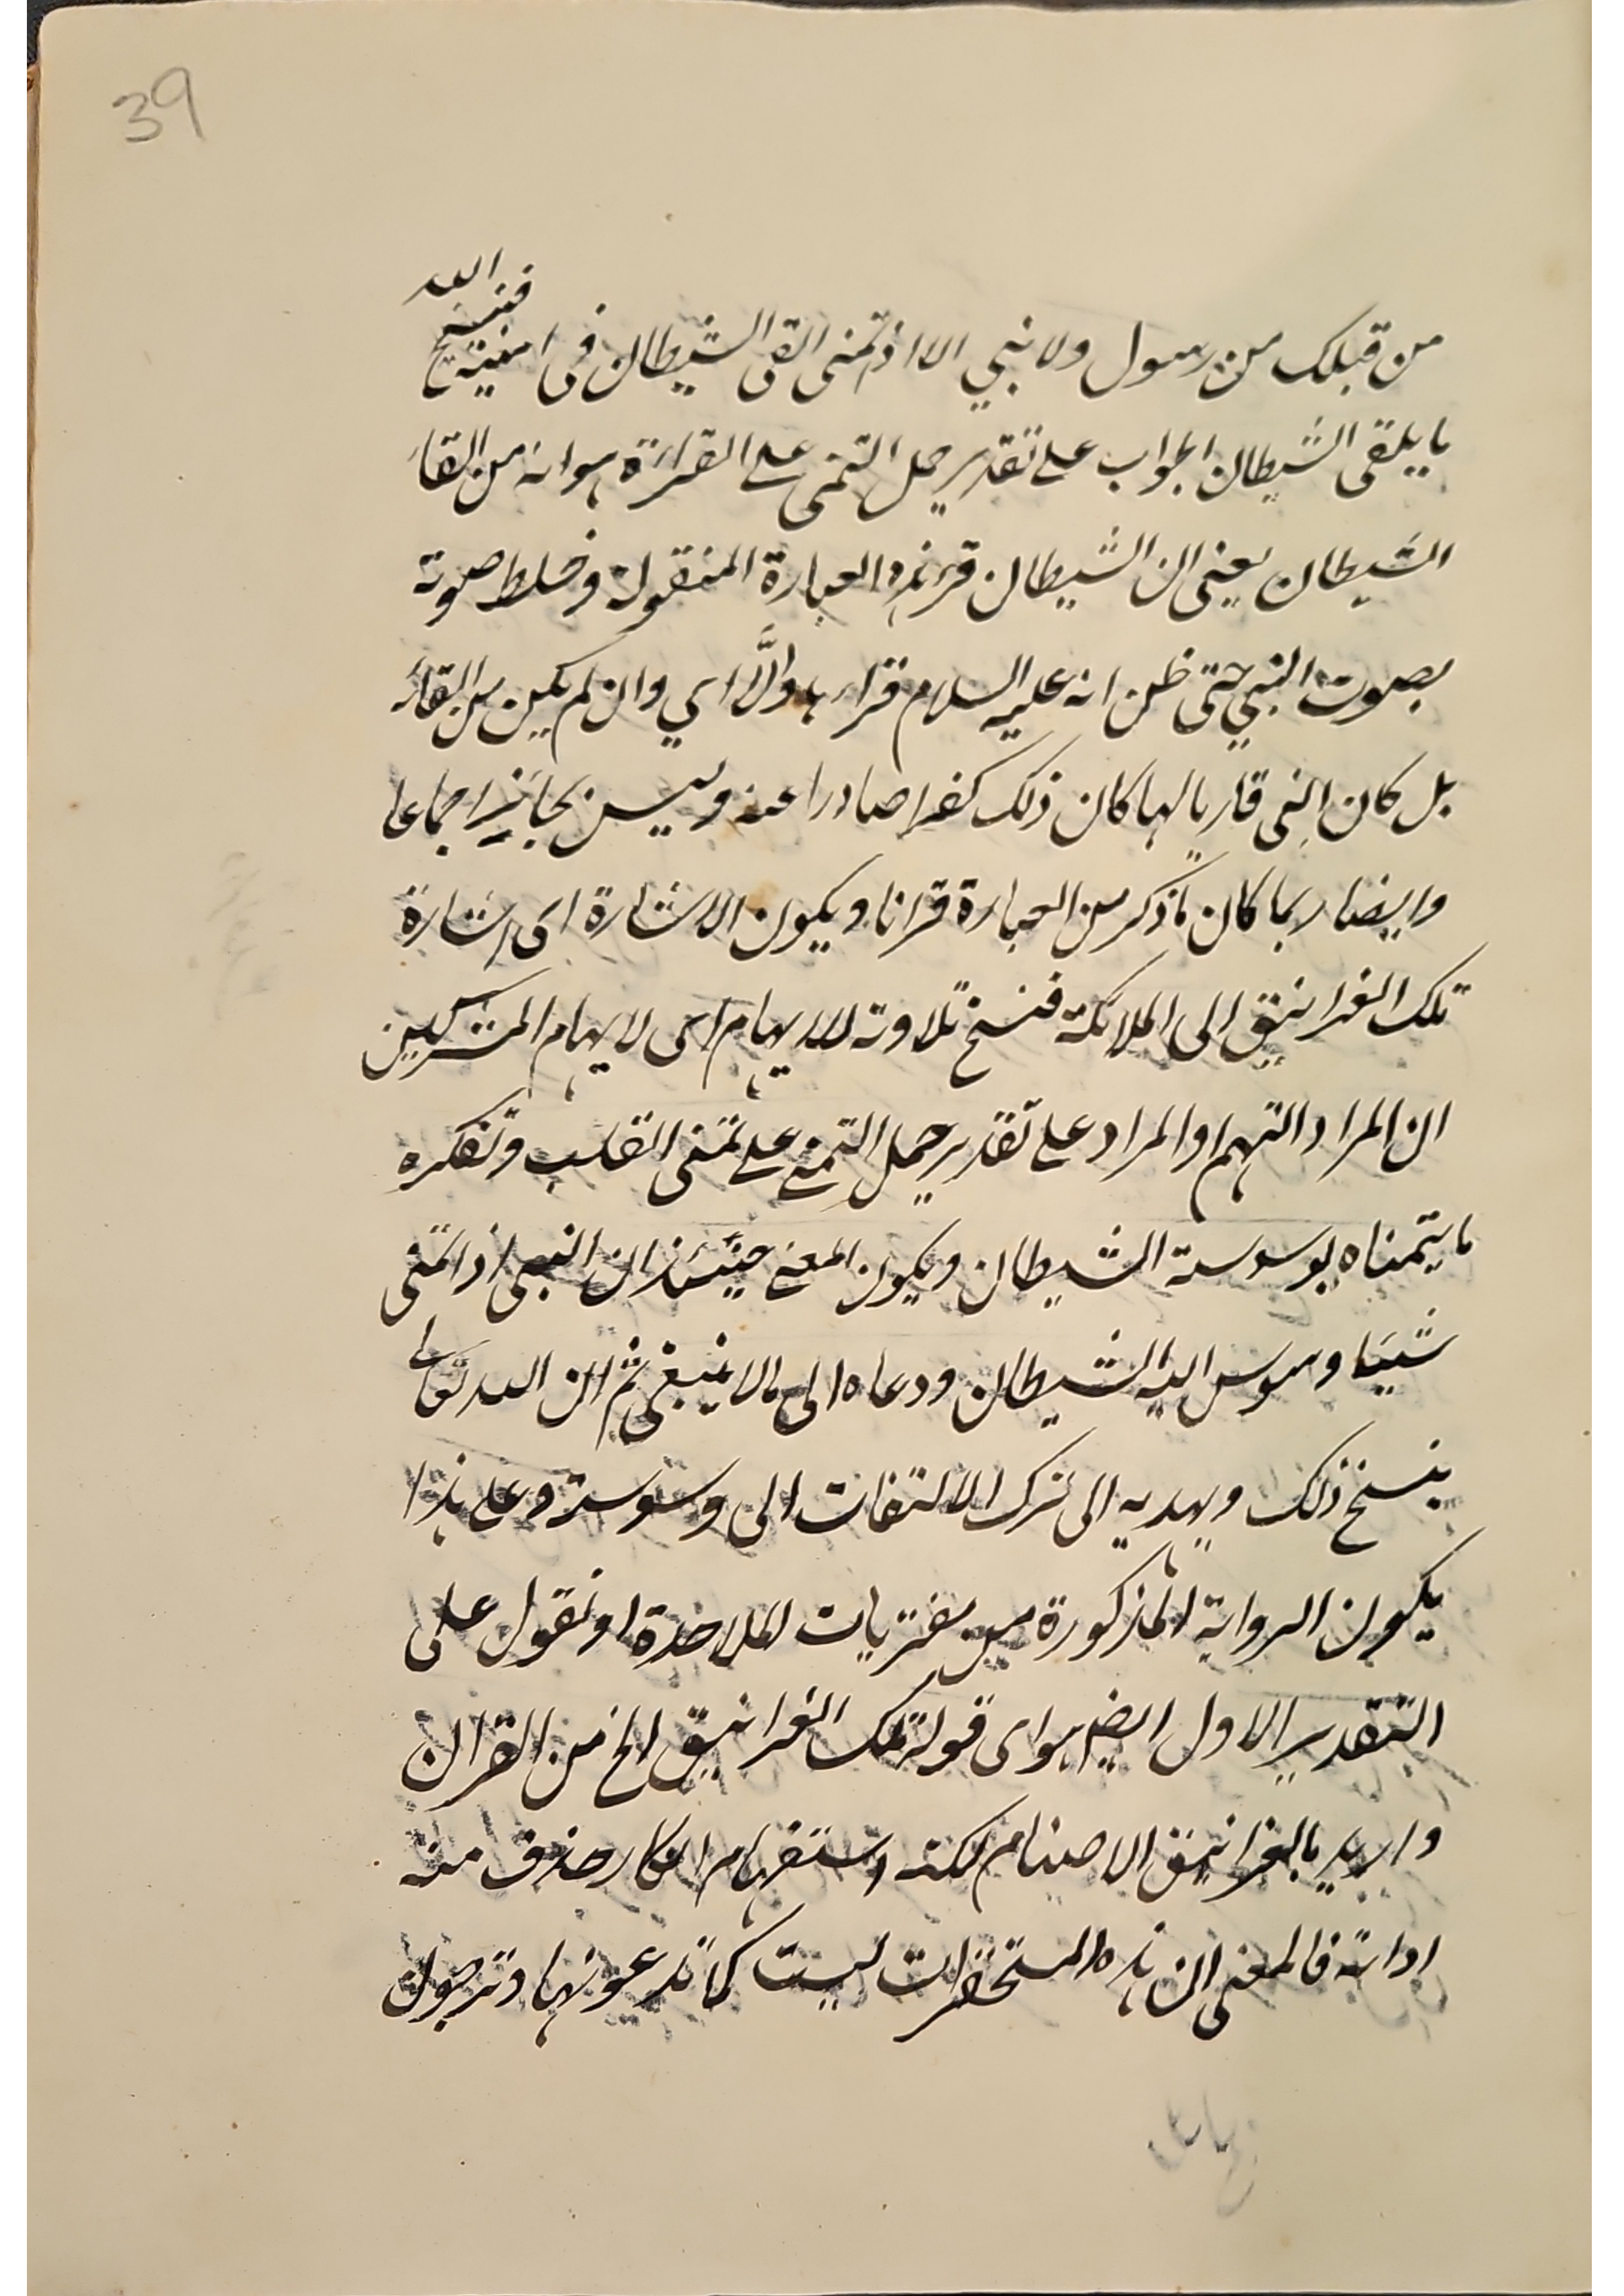 39
من قبلك من رسول ولا نبي الا اذا تمنى القى الشيطان فى امنيته فينسخ الله
ما يلقى الشيطان الجواب على تقدير حمل التمنى على القراءة هو انه من القاء
الشيطان يعنى ان الشيطان قرء هذه العبارة المنقولة وخلط صوته
بصوت النبي حتى ظن انه عليه السلام قراء بها والَّا اي وان لم يكن من القاء
بل كان النبى قاريا لها كان ذلك كفرا صادرا عنه وليس بجائز اجماعا
وايضا ربما كان ما ذكر من العبارة قرانا ويكون الاشارة اى اشارة
تلك الغرانيق الى الملائكة فنسخ تلاوته للايهام اى لايهام المشركين
ان المراد الهتهم او المراد على تقدير حمل التمنى على تمنى القلب وتفكره
ما يتمناه بوسوسة الشيطان ويكون المعنى حينئذ ان النبى اذا تمنى
شيئا وسوس اليه الشيطان ودعاه الى ما لا ينبغى ثم ان الله تعالى
ينسخ ذلك ويهديه الى ترك الالتفات الى وسوسته وعلى هذا
يكون الرواية المذكورة من مفتريات الملاحدة او نقول على
التقدير الاول ايضا هو اى قوله تلك الغرانيق الخ من القران
واريد بالغرانيق الاصنام لكنه استفهام انكار حذف منه
اداته فالمعنى ان هذه المستحقرات ليست كما تدعونها وترجون